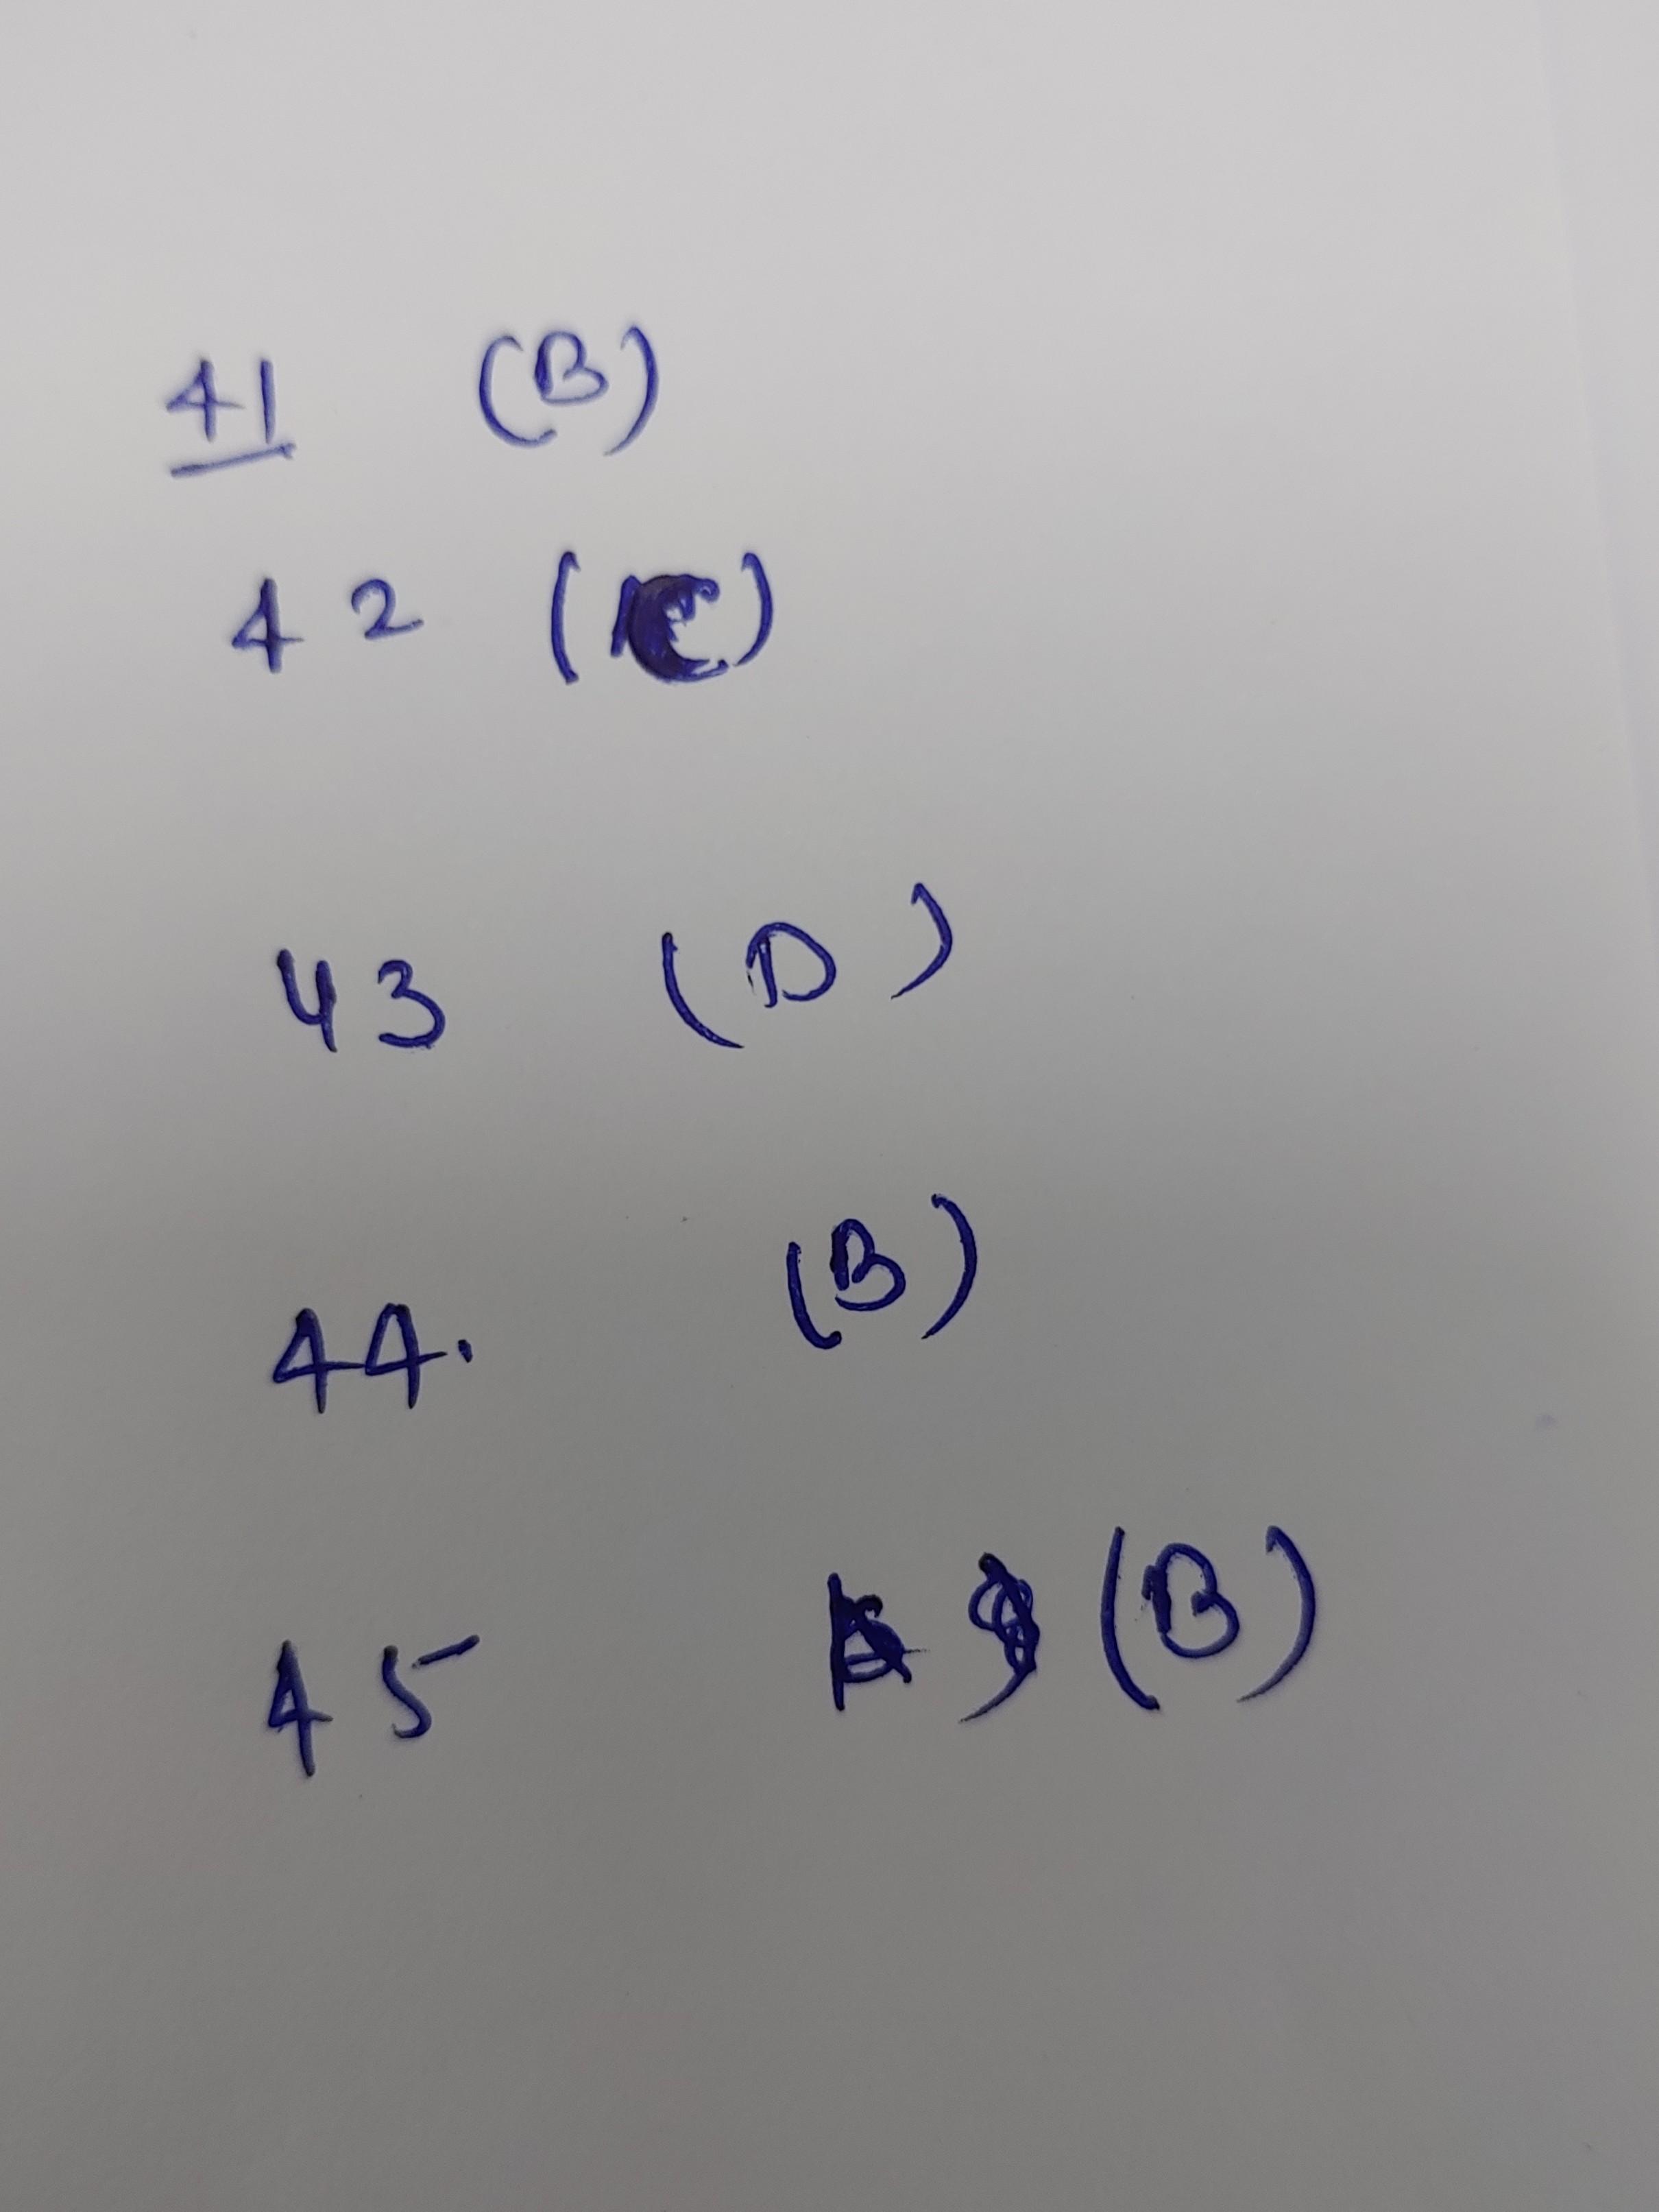 41 (B)
42 (C)
43 (D)
44. (B)
45 (B)